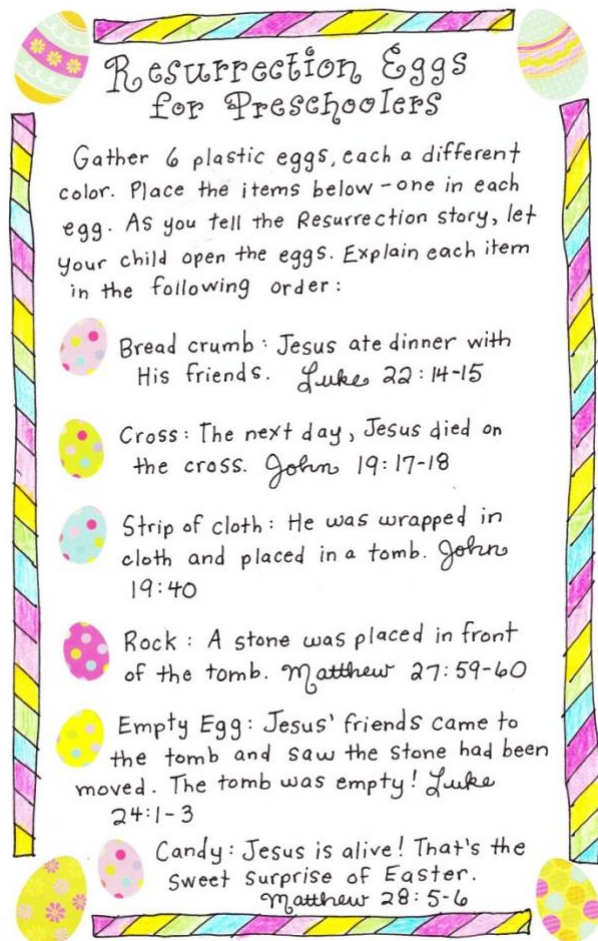 Resurrection Eggs
for Preschoolers
Gather 6 plastic eggs, each a different
color. Place the items below - one in each
egg. As you tell the Resurrection story, let
your child open the eggs. Explain each item
in the following order:
Bread crumb: Jesus ate dinner with
His friends. Luke 22:14-15
Cross: The next day, Jesus died on
the cross. John 19:17-18
Strip of cloth: He was wrapped in
cloth and placed in a tomb. John
19:40
Rock: A stone was placed in front
of the tomb. Matthew 27:59-60
Empty Egg: Jesus' friends came to
the tomb and saw the stone had been
moved. The tomb was empty! Luke
24:1-3
Candy: Jesus is alive! That's the
sweet surprise of Easter.
Matthew 28:5-6